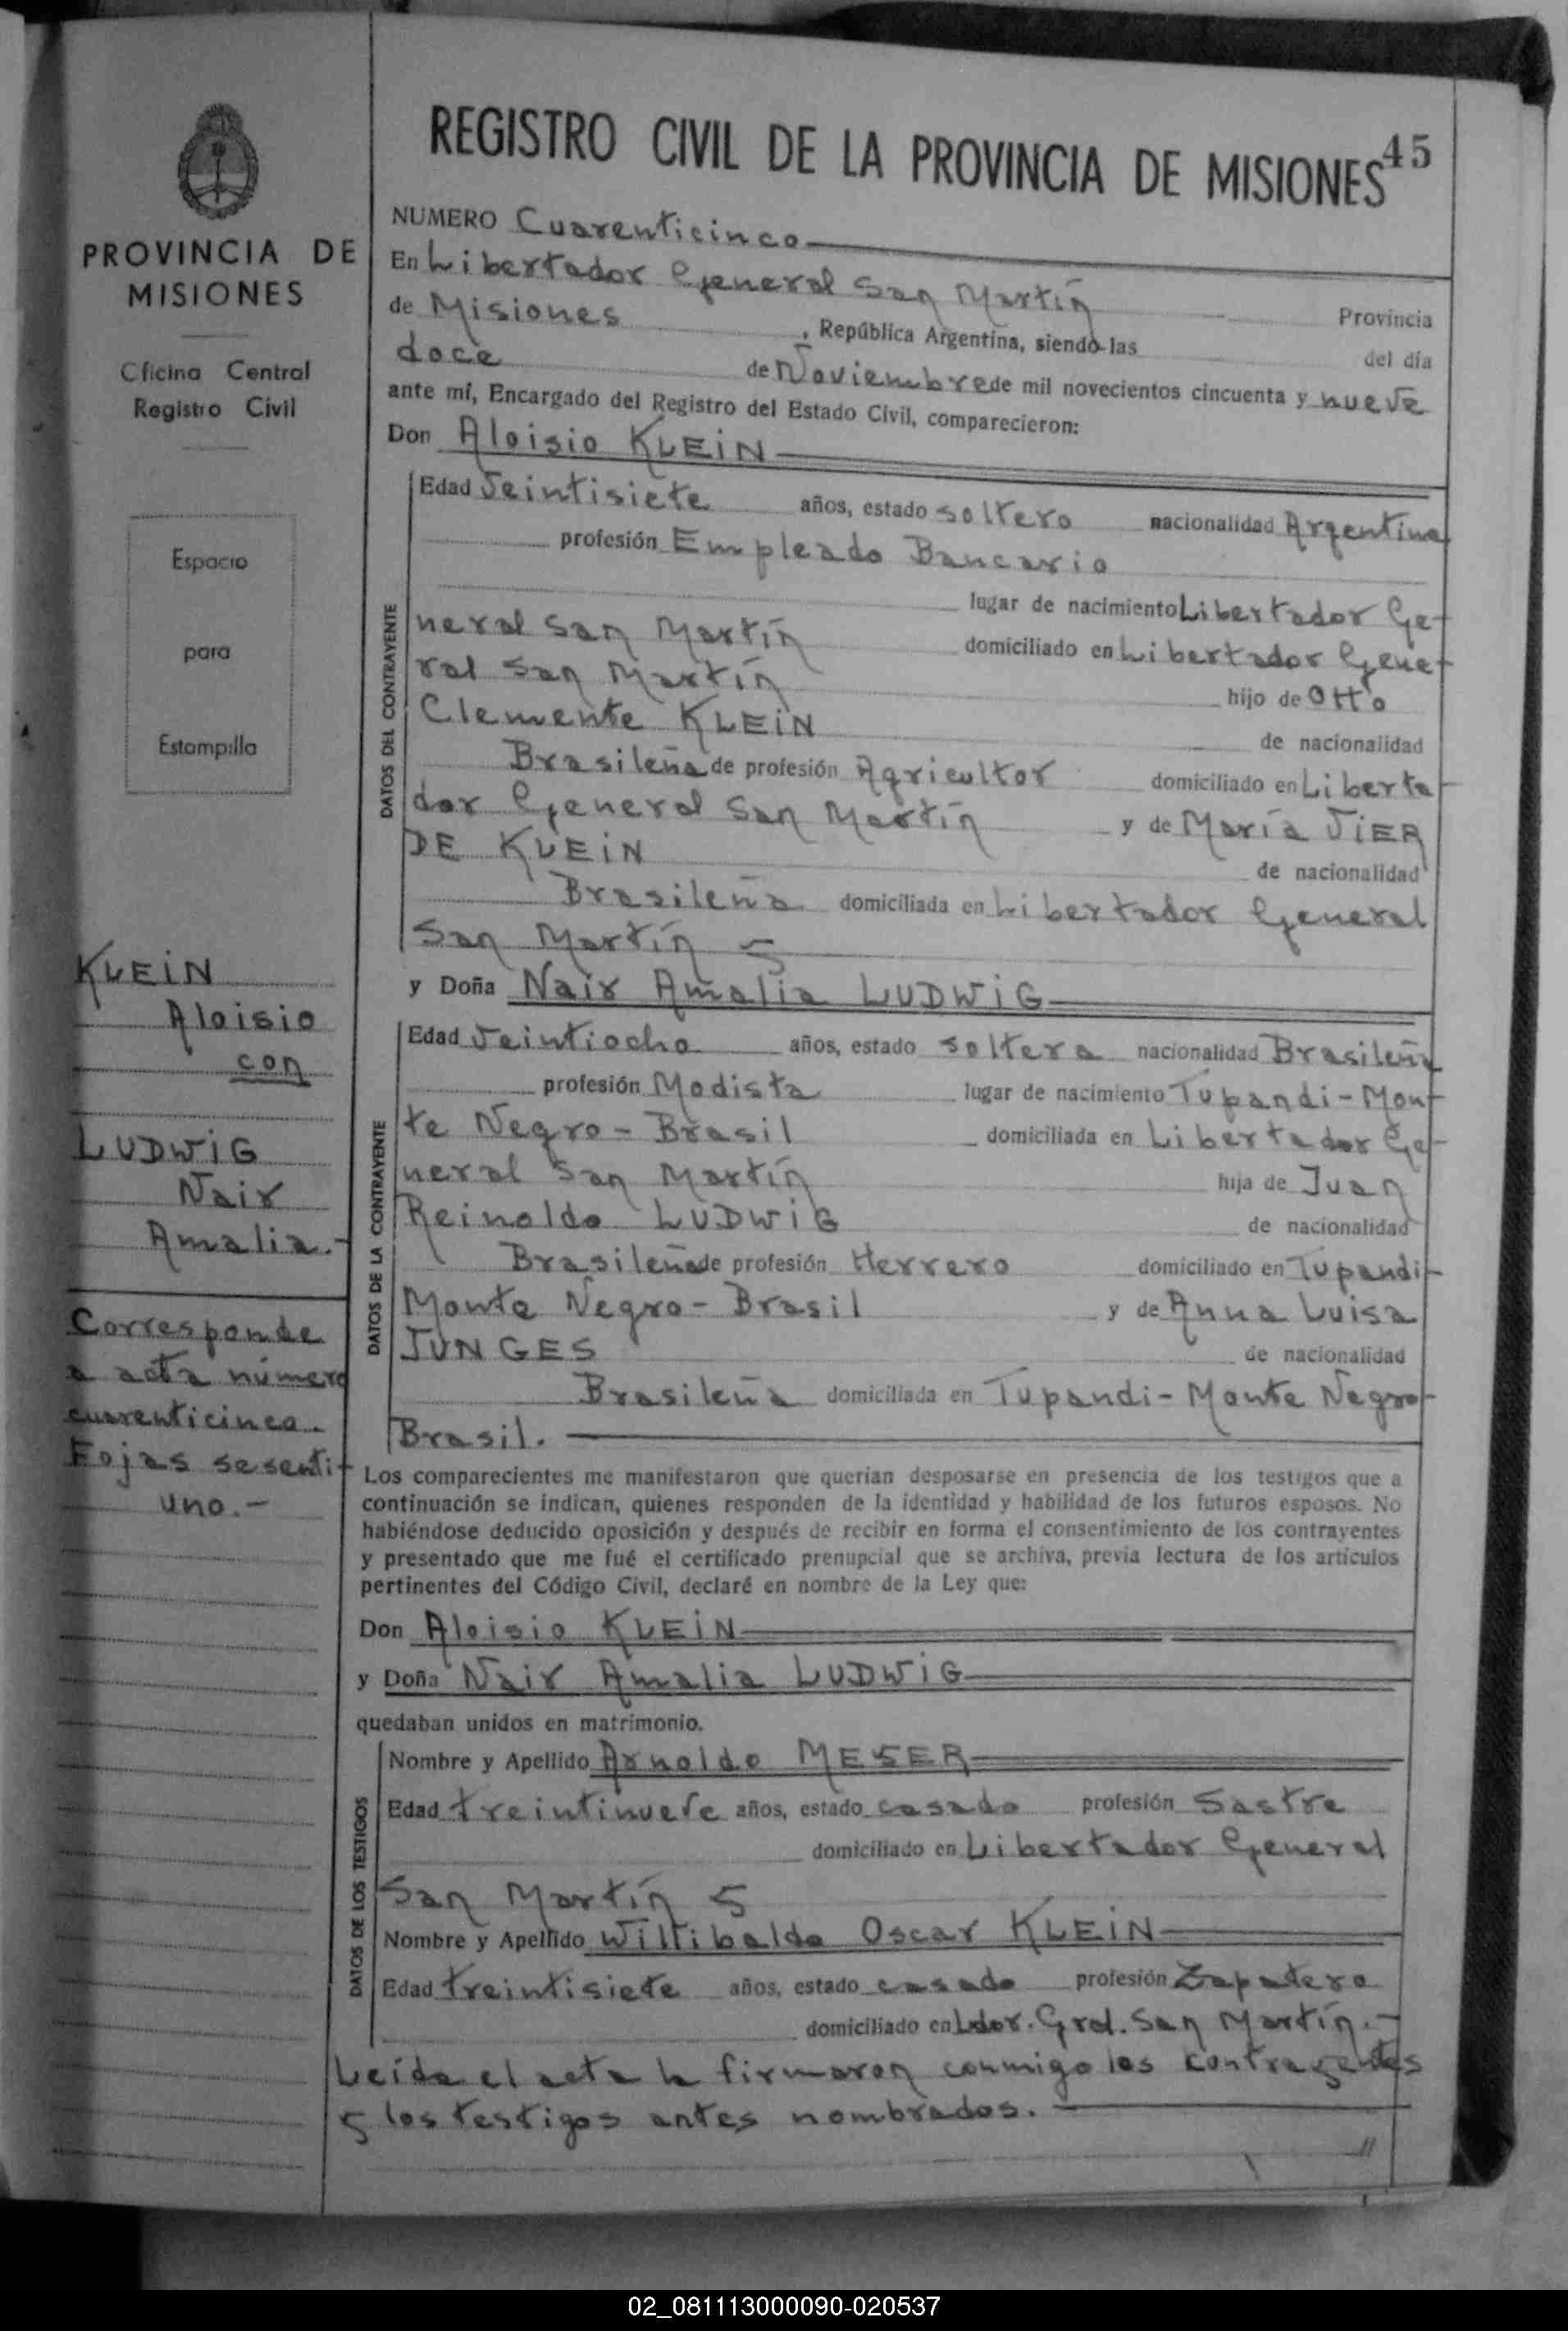 REGISTRO CIVIL DE LA PROVINCIA DE MISIONES 45
PROVINCIA DE
MISIONES
Oficina Central
Registro Civil
Espacio
para
Estampilla
KLEIN
Aloisio
con
LUDWIG
Nair
Amalia.-
Corresponde
a acta número
cuarenticinco.
Fojas sesenti-
uno.-
NUMERO Cuarenticinco
En Libertador General San Martín Provincia
de Misiones, República Argentina, siendo las del día
doce de Noviembre de mil novecientos cincuenta y nueve
ante mí, Encargado del Registro del Estado Civil, comparecieron:
Don Aloisio KLEIN
DATOS DEL CONTRAYENTE
Edad Veintisiete años, estado soltero nacionalidad Argentina
profesión Empleado Bancario
lugar de nacimiento Libertador Ge-
neral San Martín domiciliado en Libertador Gene-
ral San Martín hijo de Otto
Clemente KLEIN de nacionalidad
Brasileña de profesión Agricultor domiciliado en Liberta-
dor General San Martín y de María VIER
DE KLEIN de nacionalidad
Brasileña domiciliada en Libertador General
San Martín y
y Doña Nair Amalia LUDWIG
DATOS DE LA CONTRAYENTE
Edad Veintiocho años, estado soltera nacionalidad Brasileña
profesión Modista lugar de nacimiento Tupandi-Mon-
te Negro-Brasil domiciliada en Libertador Ge-
neral San Martín hija de Juan
Reinoldo LUDWIG de nacionalidad
Brasileña de profesión Herrero domiciliado en Tupandi-
Monte Negro-Brasil y de Anna Luisa
JUNGES de nacionalidad
Brasileña domiciliada en Tupandi-Monte Negro-
Brasil.
Los comparecientes me manifestaron que querían desposarse en presencia de los testigos que a
continuación se indican, quienes responden de la identidad y habilidad de los futuros esposos. No
habiéndose deducido oposición y después de recibir en forma el consentimiento de los contrayentes
y presentado que me fué el certificado prenupcial que se archiva, previa lectura de los artículos
pertinentes del Código Civil, declaré en nombre de la Ley que:
Don Aloisio KLEIN
y Doña Nair Amalia LUDWIG
quedaban unidos en matrimonio.
DATOS DE LOS TESTIGOS
Nombre y Apellido Arnoldo MESER
Edad treintinueve años, estado casado profesión Sastre
domiciliado en Libertador General
San Martín y
Nombre y Apellido Willibaldo Oscar KLEIN
Edad treintisiete años, estado casado profesión Zapatero
domiciliado en Ldor. Gral. San Martín.-
Leída el acta la firmaron conmigo los contrayentes
y los testigos antes nombrados.
//
02_081113000090-020537